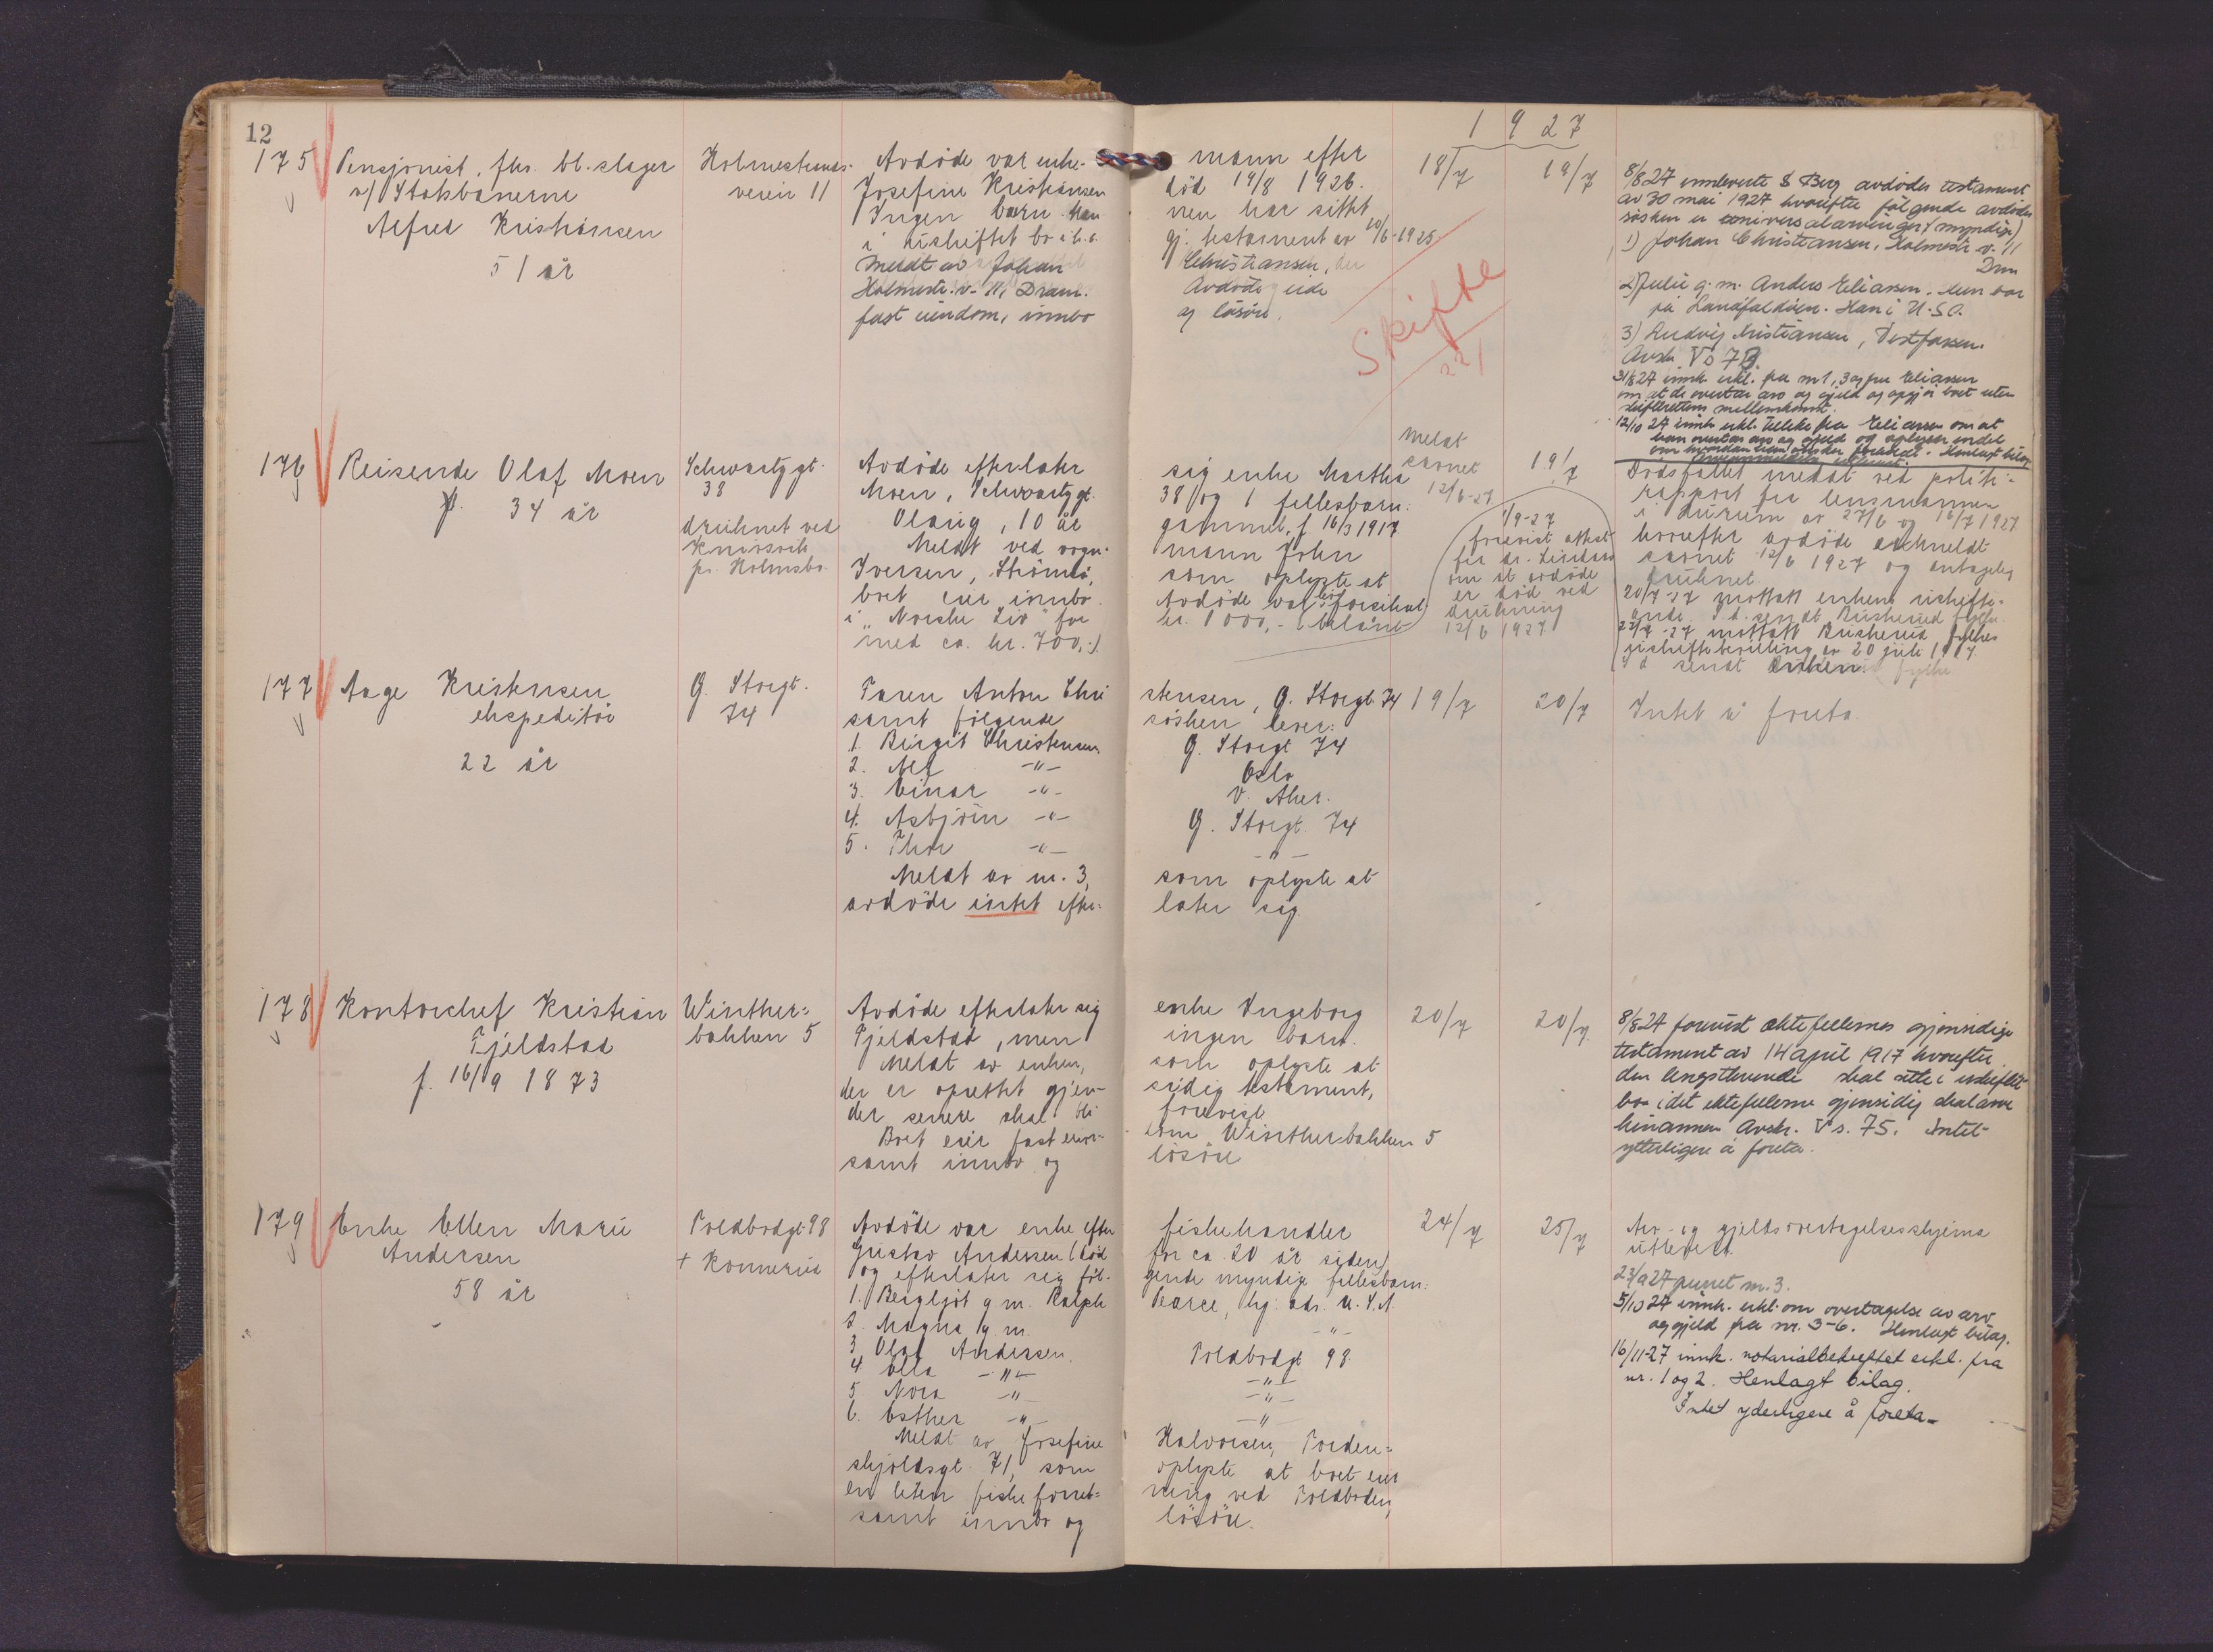 12
1927
175
Pensjonist, fhv. bl.slager
v/ Statsbanerne
Alfred Kristiansen
51 år
Holmestrands-
veien 11
Avdöde var enke- mann efter
Josefine Kristiansen död 19/8 1926.
Ingen barn. Man- nen har sittet
i uskiftet bo i h.t. gj. testament av 10/6-1925
Meldt av Johan Christiansen,
Holmestr.v. 11, Dram. Avdöde eide
fast eiendom, innbo og lösöre.
18/7
19/7
Skifte
221
8/8 27 innleverte S Berg avdödes testament
av 30 mai 1927 hvorefter fölgende avdödes
søsken er universalarvinger (myndige)
1) Johan Christiansen, Holmestr. v. 11
Drm
2) Julie g.m. Anders Eliassen. Hun bor
på Landfalløien. Han i U.S.A.
3) Ludvig Kristiansen, Vestfossen.
Avskr. Vs 73.
31/8 27 innk. erkl. fra nr 1, 3 og fru Eliassen
om at de overtar arv og gjeld og opgjör boet uten
skifterettens mellemkomst.
12/10 27 innk erkl. tillike fra Eliassen om at
han overtar arv og gjeld og
176
Reisende Olaf Moen
34 år
Schwartzgt.
38
druknet ved
Knivsvik
pr. Holmsbo
Avdöde efterlater sig enke Martha
Moen, Schwartzgt. 38 og 1 fellesbarn:
Olaug, 10 år gammel, f 16/3 1917
Meldt ved vogn- mann John
Iversen, Strömsö, som oplyste at
boet eier innbo. Avdöde var livsforsikret
i "Norske Liv" for kr. 1000,- (belånt
med ca. kr. 700,-).
Meldt
savnet
12/6-27
19/7
1/9-27
forevist attest
fra dr.
om at avdöde
er död ved
drukning
12/6 1927.
Dödsfallet meldt ved politi-
rapport fra lensmannen
i Hurum av 27/6 og 16/7 1927
hvorefter avdöde anmeldt
savnet 12/6 1927 og antagelig
druknet
20/7-27 mottatt enkens uskifte-
ands. S.d. sendt Buskerud fylke.
22/7-27 mottatt Buskerud fylkes
uskiftebevilling av 20 juli 1927.
S d sendt enken
177
Aage Kristensen
ekspeditör
22 år
G. Storgt.
74
Faren Anton Chri stensen, G. Storgt. 74
samt fölgende sösken lever:
1. Birgit Christensen G. Storgt 74
2. Alf -"- Oslo
3. Einar -"- V. Aker.
4. Asbjörn -"- G. Storgt. 74
5. Thor -"- -"-
Meldt av nr. 3, som oplyste at
avdöde intet efter- later sig
19/7
20/7
Intet å foreta.
178
Kontorchef Kristian
Fjeldstad
f. 16/9 1873
Winther-
bakken 5
Avdöde efterlater sig enke Ingeborg
Fjeldstad, men ingen barn.
Meldt av enken, som oplyste at
der er oprettet gjen- sidig testament,
der senere skal bli forevist
Boet eier fast eien- dom Wintherbakken 5
samt innbo og lösöre
20/7
20/7.
8/8 27 forevist ektefellernes gjensidige
testament av 14 april 1917 hvorefter
den lengstlevende skal sitte i uskiftet
bo idet ektefellerne gjensidig skal arve
hinannen. Avskr. Vs. 75. Intet
ytterligere å foreta.
179
Enke Ellen Marie
Andersen
58 år
Toldbodgt 98
+ Konnerud
Avdöde var enke efter fiskehandler
Gustav Andersen (död for ca. 20 år siden)
og efterlater sig föl- gende myndige fellesbarn:
1. Bergljot g.m. Ralph Pearce, adr. U.S.A.
2. Magna g.m. -"-
3. Olaf Andersen. Toldbodgt 98.
4. Ella -"- -"-
5. Nora -"- -"-
6. Esther -"- -"-
Meldt av Josefine Halvorsen, Torden-
skjoldsgt. 71, som oplyste at boet eier
en liten fiskeforret- ning ved Toldboden,
samt innbo og lösöre.
24/7
25/7
Arv- og gjeldsovertagelsesskjema
utlevert.
23/9 27 purret nr. 3.
5/10 27 innk. erkl. om overtagelse av arv
og gjeld fra nr. 3-6. Henlagt bilag.
16/11-27 innk. notarialbekreftet erkl. fra
nr. 1 og 2. Henlagt bilag.
Intet yderligere å foreta.